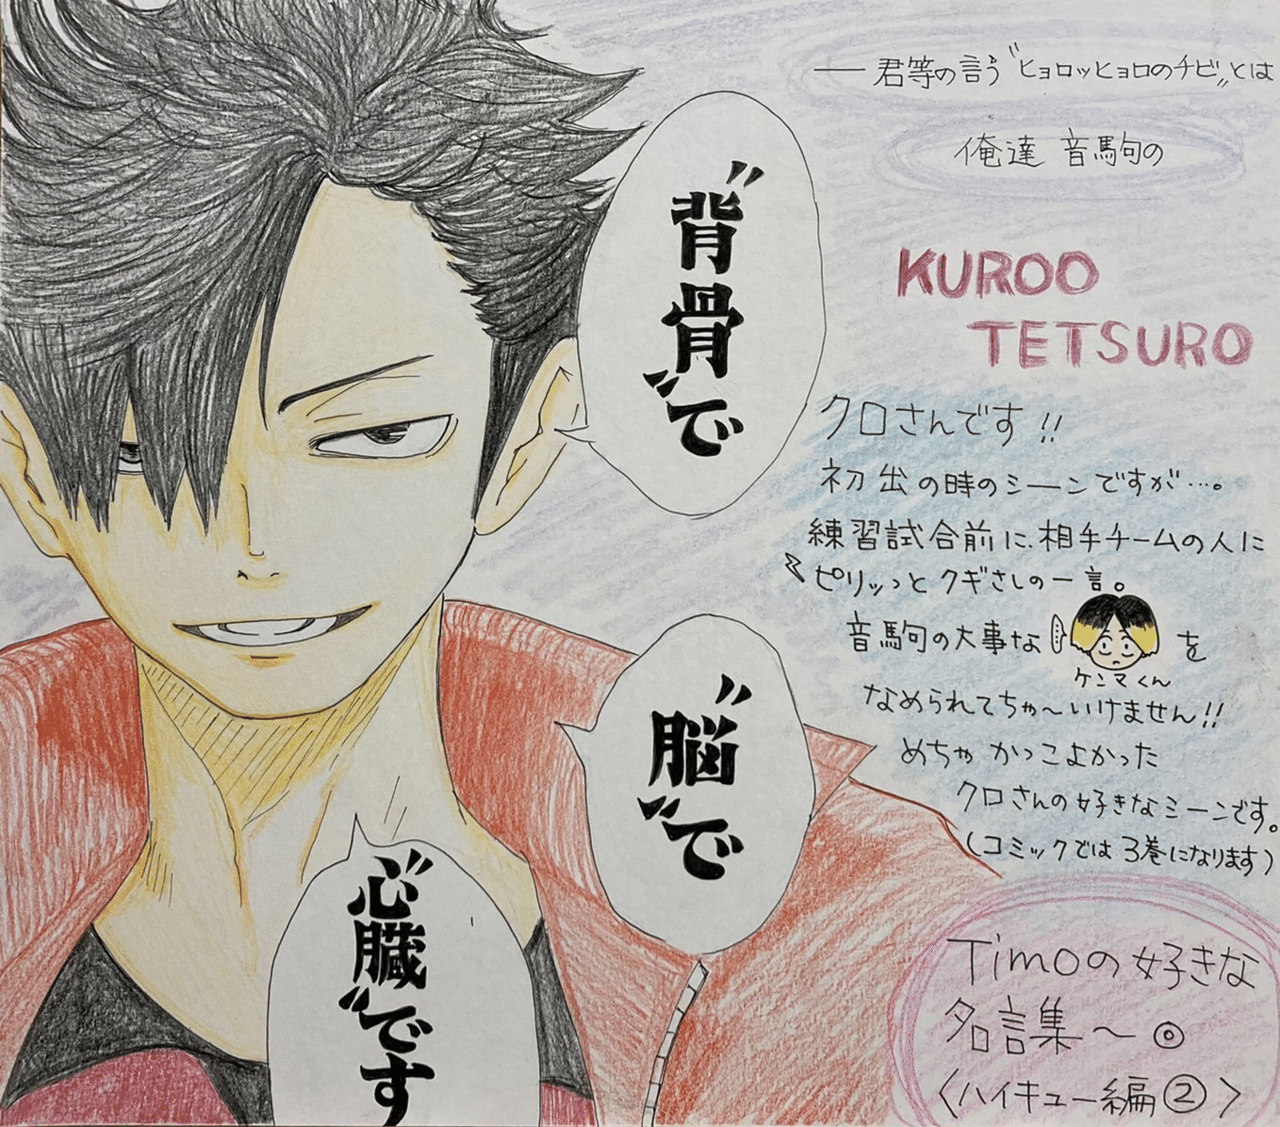 ―君等の言う〝ヒョロッヒョロのチビ〟とは
俺達 音駒の
〝背骨〟で
〝脳〟で
〝心臓〟です
KUROO
TETSURO
クロさんです!!
初出の時のシーンですが…。
練習試合前に、相手チームの人に
ピリッっとクギさしの一言。
音駒の大事な……を
ケンマくん
なめられてちゃ〜いけません!!
めちゃかっこよかった
クロさんの好きなシーンです。
(コミックでは3巻になります)
Timoの好きな
名言集〜◎
〈ハイキュー編②〉